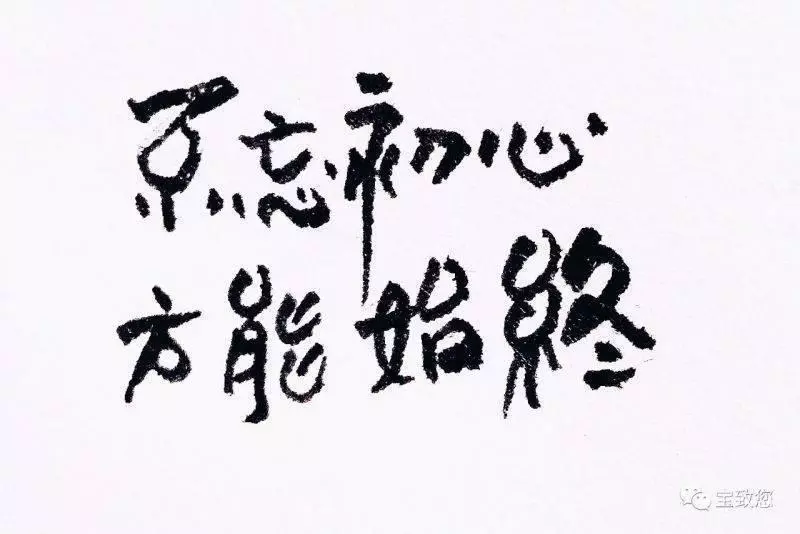 不忘初心
方能始終
宝致您